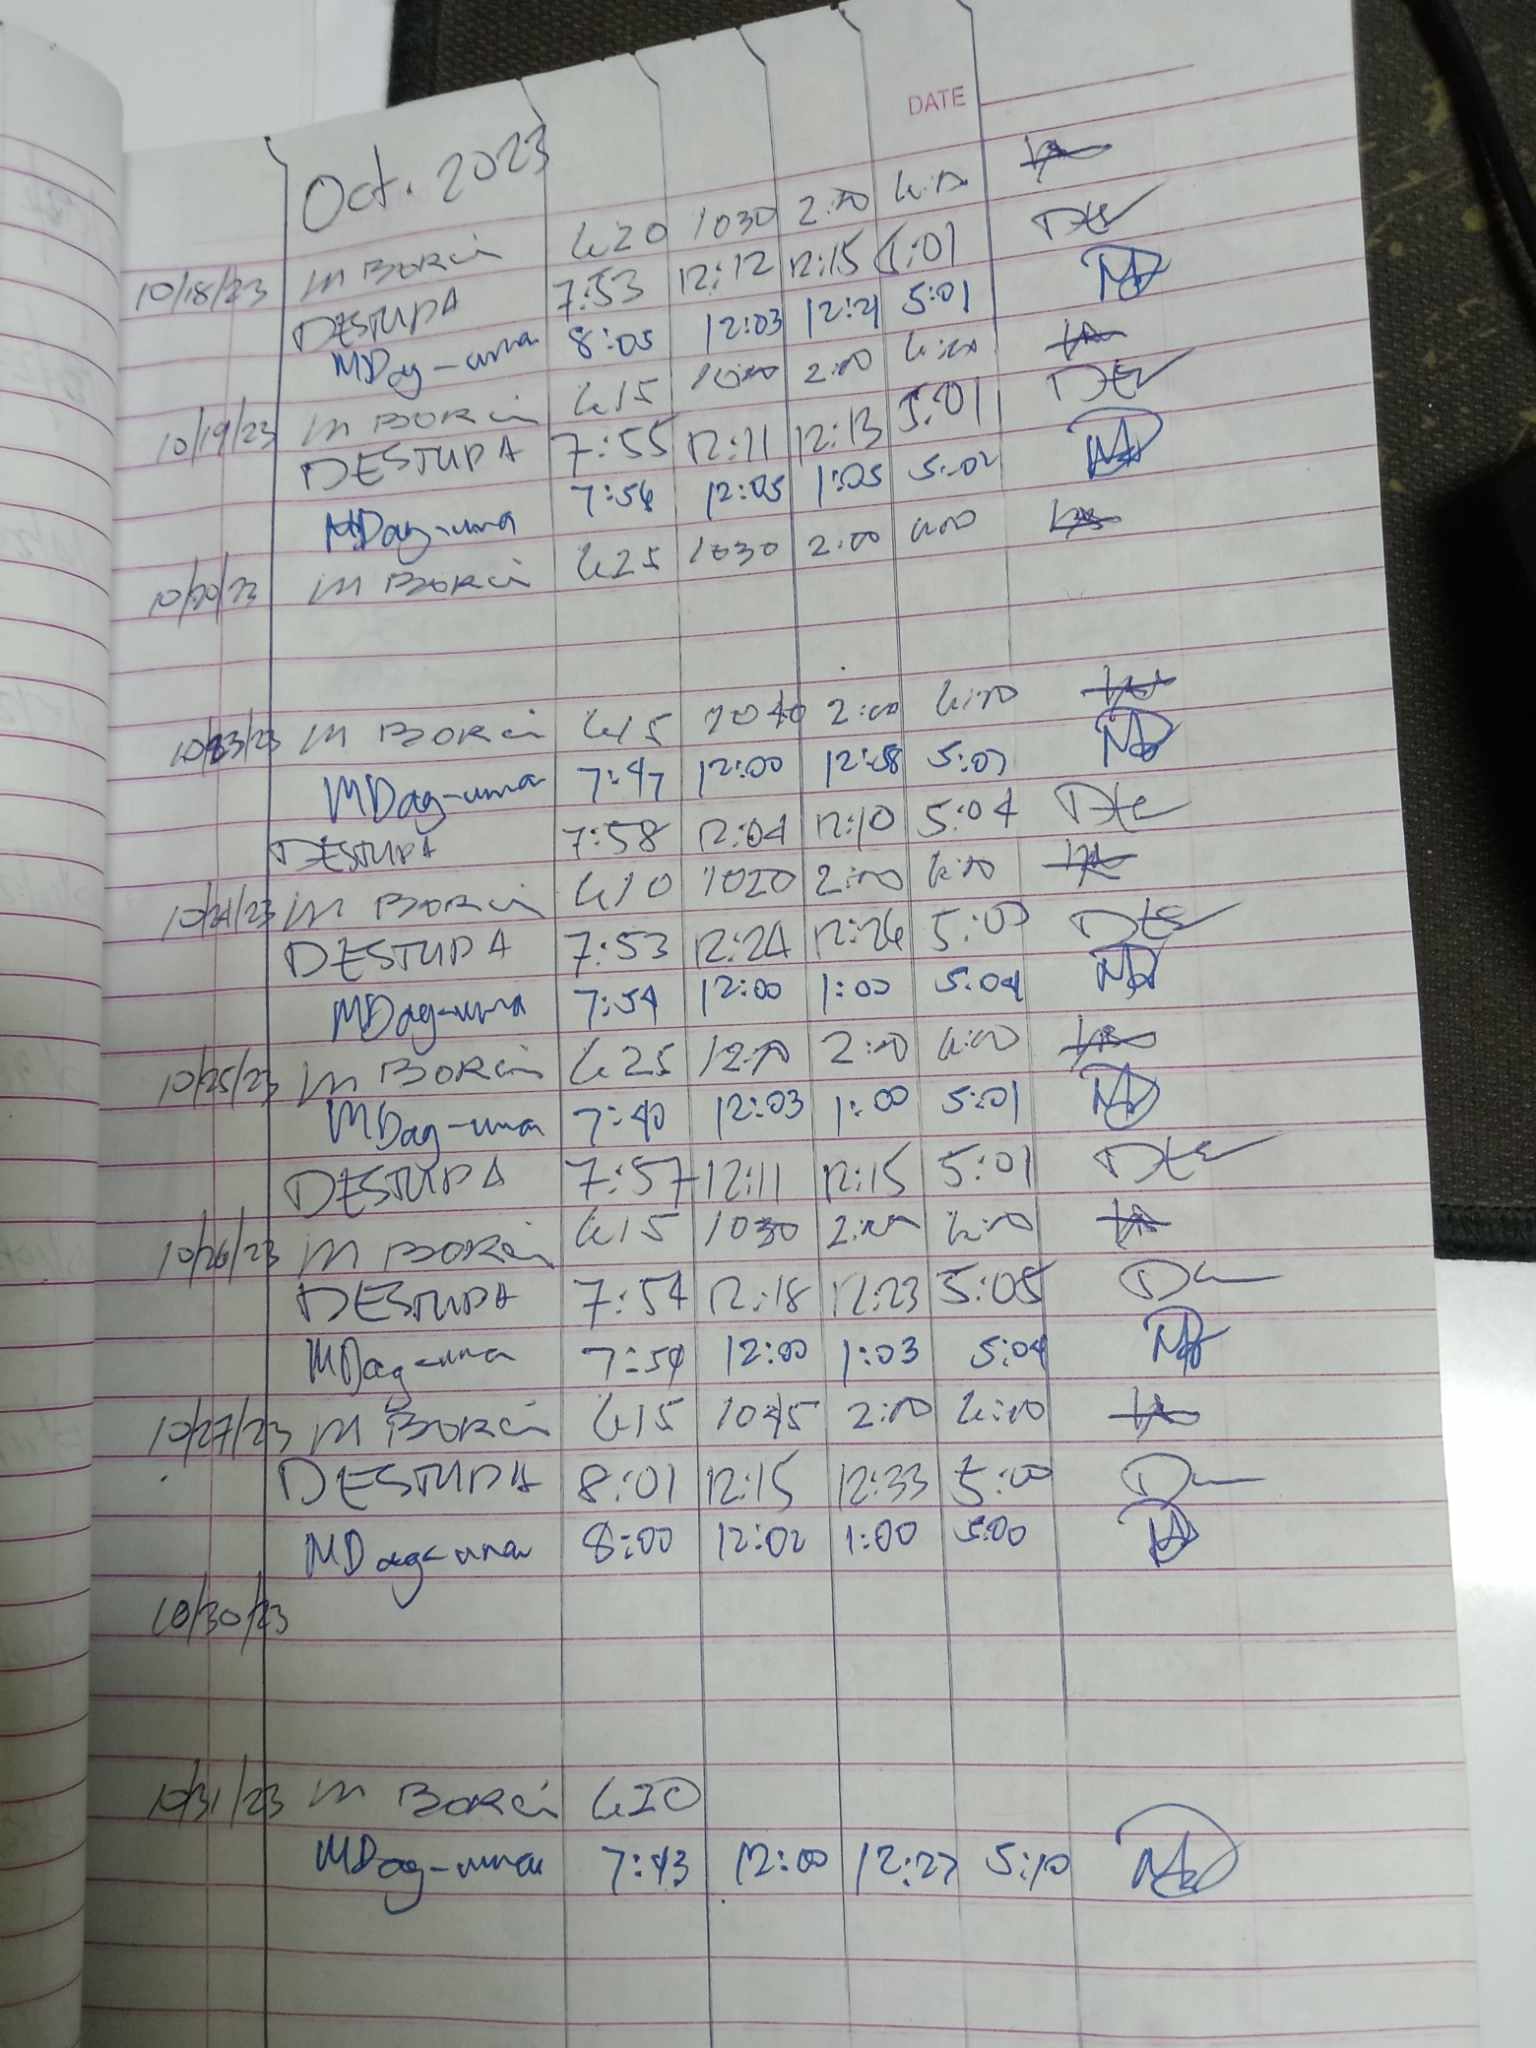 DATE
Oct. 2023
10/18/23 M BORCI 620 1030 2:00 6:00
DESTUPA 7:53 12:12 12:15 5:01
MDag-uma 8:05 12:03 12:21 5:01
10/19/23 M BORCI 615 2:00
DESTUPA 7:55 12:11 12:13 5:01
MDag-uma 7:56 12:05 1:05 5:02
10/20/23 M BORCI 625 1030 2:00
10/23/23 M BORCI 615 1040 2:00 6:00
MDag-uma 7:47 12:00 12:58
DESTUPA 7:58 12:04 12:10 5:04
10/24/23 M BORCI 610 1020 2:00 6:00
DESTUPA 7:53 12:24 12:26
MDag-uma 7:54 12:00 1:00 5:04
10/25/23 M BORCI 625 12:10 2:00 6:00
MDag-uma 7:40 12:03 1:00 5:01
DESTUPA 7:57 12:11 12:15 5:01
10/26/23 M BORCI 615 1030 2:00 6:00
DESTUPA 7:54 12:18 12:23 5:05
MDag-uma 7:54 12:00 1:03 5:04
10/27/23 M BORCI 615 1045 2:00 6:00
DESTUPA 8:01 12:15 12:33 5:00
MDag-uma 8:00 12:02 1:00 5:00
10/30/23
10/31/23 M BORCI 620
MDag-uma 7:43 12:00 12:27 5:10